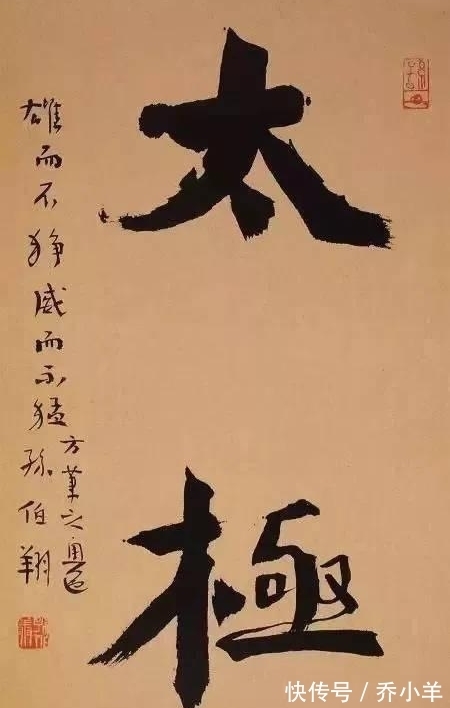 太極
雄而不狰威而不猛
方筆之奥也
孫伯翔
快传号 / 乔小羊